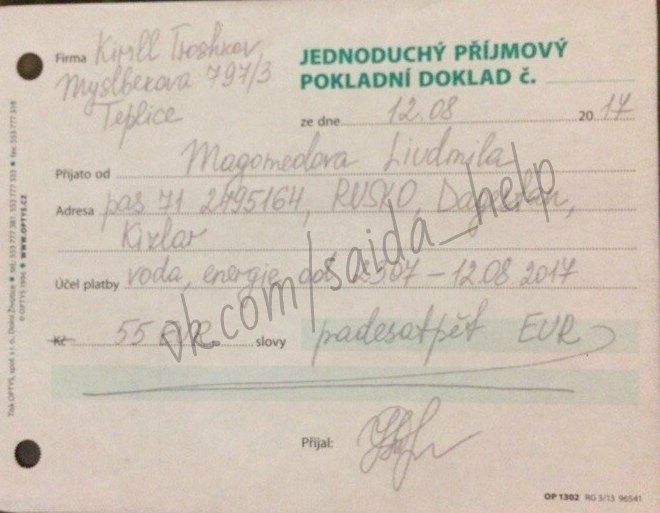 Firma Kirill Troshkov
Myslbekova 797/3
Teplice
JEDNODUCHÝ PŘÍJMOVÝ
POKLADNÍ DOKLAD č.
ze dne 12.08 2017
Přijato od Magomedova Liudmila
Adresa pas 71 2495164, RUSKO, Dagestan,
Kizlar
Účel platby voda, energie od 2507 - 12.08 2017
Kč 55 EUR slovy padesatpět EUR
Přijal:
OP 1302 RG 3/13 96541
Tisk OPTYS, spol. s r. o., Dolní Životice • tel.: 553 777 381, 553 777 555 • fax: 553 777 519
© OPTYS 1996 • WWW.OPTYS.CZ
vk.com/saida_help